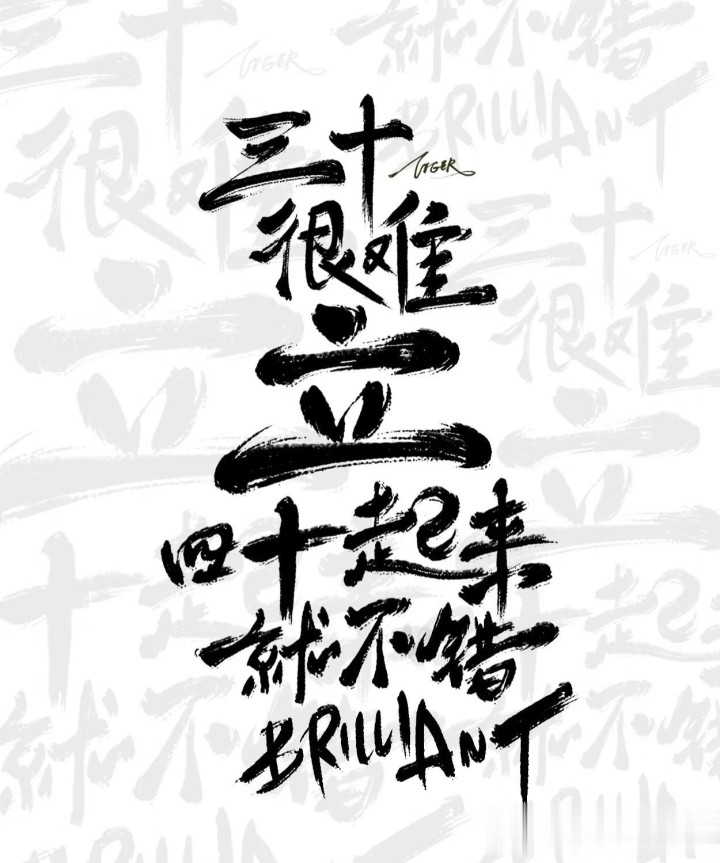 三十
TYGER
很难
立
四十起来
就不错
BRILLIANT